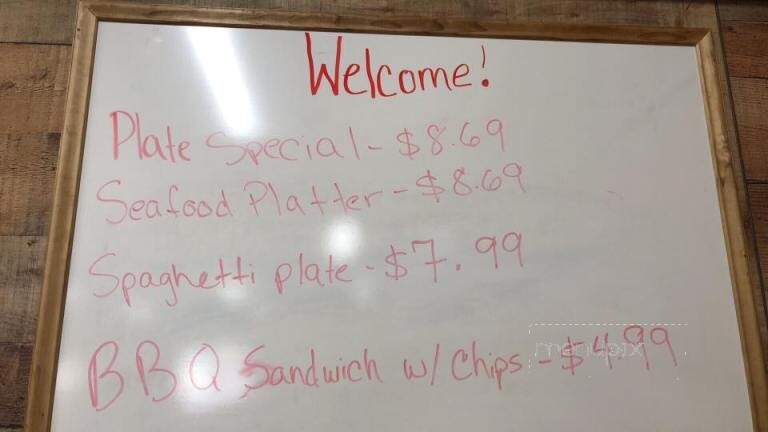 Welcome!
Plate Special - $8.69
Seafood Platter - $8.69
Spaghetti plate - $7.99
BBQ Sandwich w/ Chips - $4.99
menupix